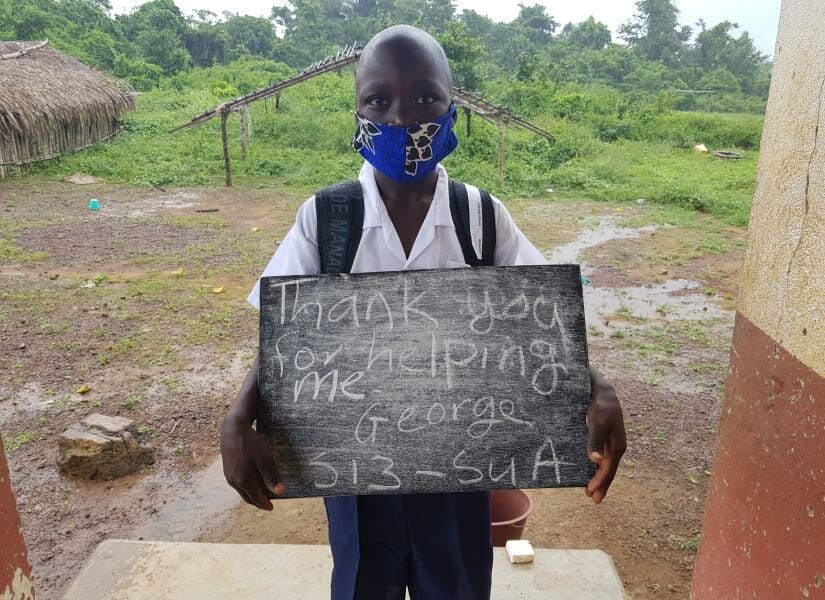 Thank you
for helping
me
George
S13-SUA
DE MANA